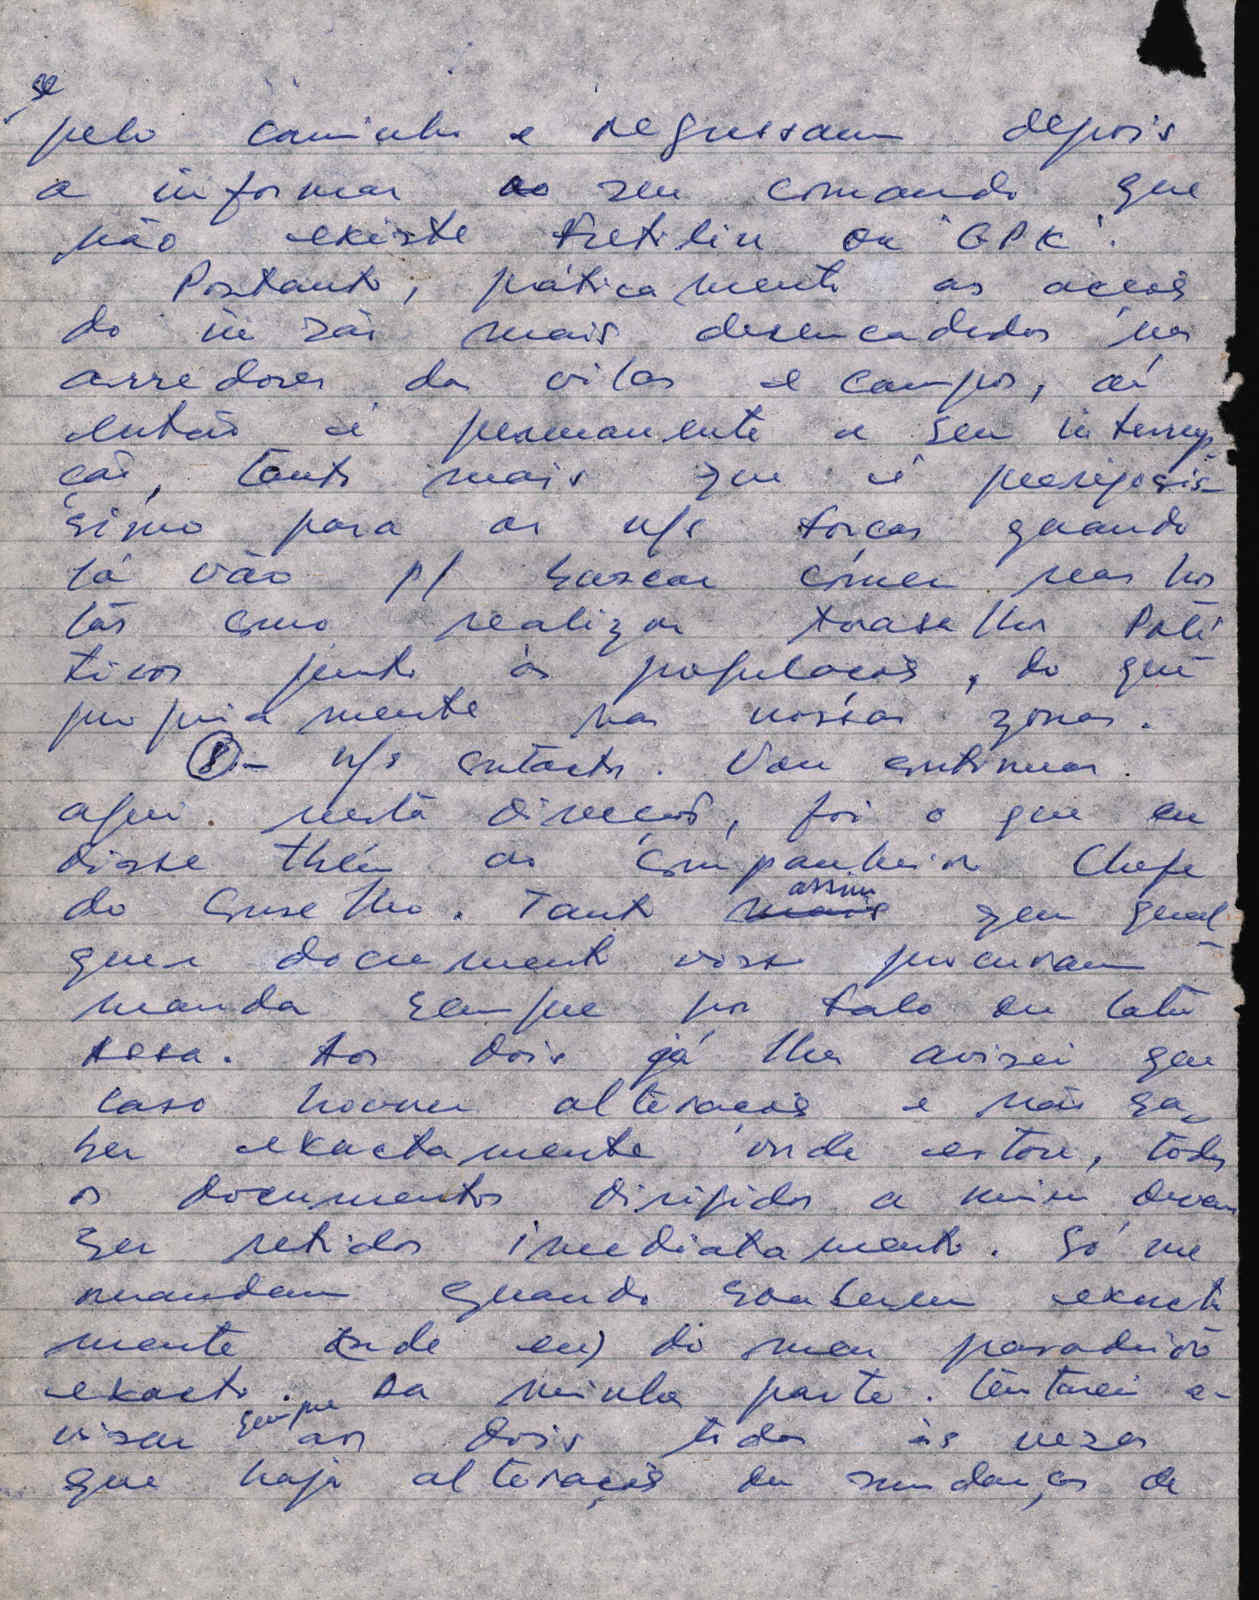 se
pelo caminho e regressam depois
a informar ao seu comando que
não existe Fretilin ou "GPK".
Portanto, práticamente as acções
do ini são mais desencadedos nos
arredores da vilas e campos, aí
então é permanente a seu interrup-
ção, tanto mais que é perigosis-
simo para as n/s forças quando
lá vão p/ buscar comer nas hor
tas como realizar trabalhos Polí
ticos junto às populações, do que
propriamente nas nossas zonas.
8.- n/s contacto. Vou continuar
aqui nesta direcção, foi o que eu
disse tbém ao companheiro Chefe
do Conselho. Tanto assim que qual
quer documento vosso procuram
manda sempre por Falo ou Calu
sesa. Aos dois já lhes avisei que
caso houver alterações e não sa-
ber exactamente onde estou, todos
os documentos dirigidos a mim devam
ser retidos imediatamente. Só me
mandam quando souberem exacta
mente onde eu) do meu paradeiro
exacto. Da minha parte. Tentarei a-
visar sempre aos dois todas as vezes
que haja alterações ou mudanças de